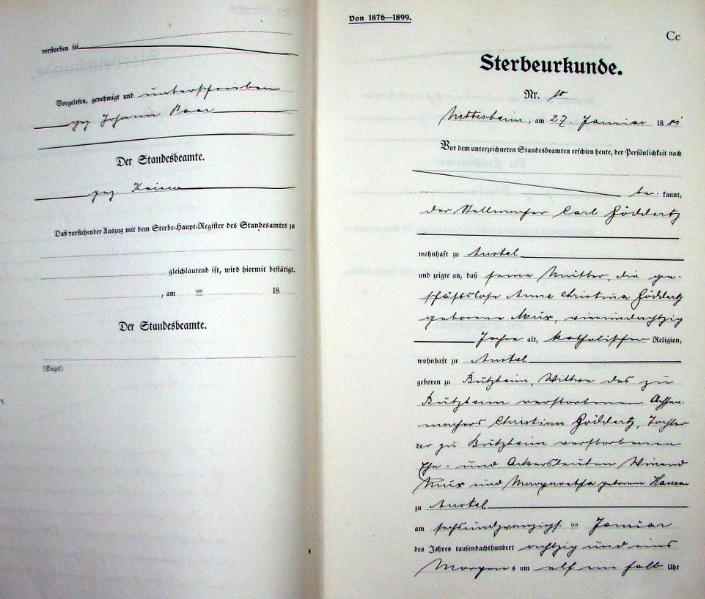 verstorben sei
Vorgelesen, genehmigt und unterschrieben
gez Johann
Der Standesbeamte.
gez
Daß vorstehender Auszug mit dem Sterbe-Haupt-Register des Standesamtes zu
gleichlautend ist, wird hiermit bestätigt.
, am ten 18
Der Standesbeamte.
(Siegel)
Von 1876—1899.
Cc
Sterbeurkunde.
Nr. 10
Nettesheim, am 27. Januar 18 81
Vor dem unterzeichneten Standesbeamten erschien heute, der Persönlichkeit nach
be kannt,
der Stellmacher Carl Göddertz
wohnhaft zu Anstel
und zeigte an, daß seine Mutter, die ge-
schäftslose Anna Christina Göddertz
geborene Mux, einundachtzig
Jahre alt, katholischer Religion,
wohnhaft zu Anstel
geboren zu Butzheim, Wittwe des zu
Butzheim verstorbenen
machers Christian Göddertz, Tochter
der zu Butzheim verstorbenen
Ehe- und Ackersleuten Winand
Mux und Margaretha geborene
zu Anstel
am sechsundzwanzigsten Januar
des Jahres tausendachthundert achtzig und eins
Morgens um elf ein halb Uhr